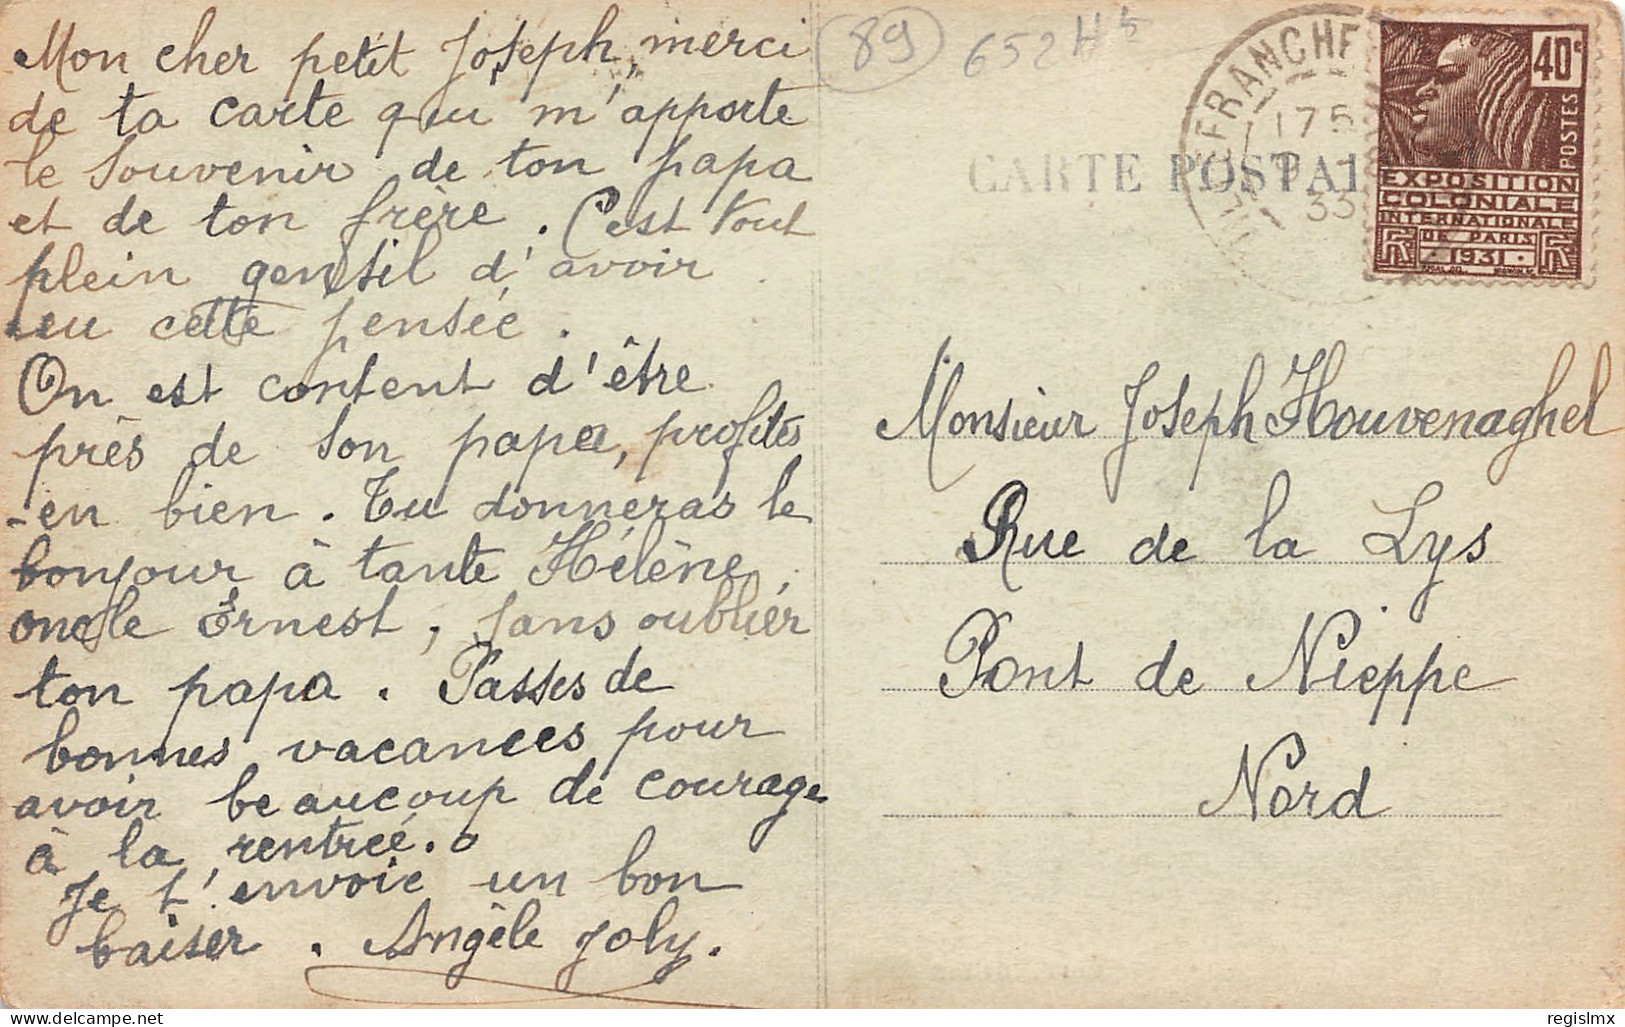 Mon cher petit Joseph, merci
de ta carte qui m'apporte
le souvenir de ton papa
et de ton frère. C'est tout
plein gentil d'avoir
eu cette pensée.
On est content d'être
près de son papa, profites
en bien. Tu donneras le
bonjour à tante Hélène,
oncle Ernest, sans oublier
ton papa. Passes de
bonnes vacances pour
avoir beaucoup de courage
à la rentrée.
Je t'envoie un bon
baiser. Angèle Joly.
89
652
CARTE POSTAL
FRANCHE
175
33
40c
POSTES
EXPOSITION
COLONIALE
INTERNATIONALE
DE PARIS
1931
Monsieur Joseph Houvenaghel
Rue de la Lys
Pont de Nieppe
Nord
regislmx